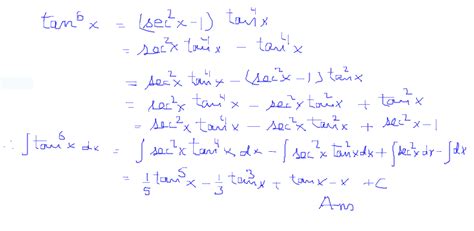 tan⁶x = (sec²x-1) tan⁴x
= sec²x tan⁴x - tan⁴x
= sec²x tan⁴x - (sec²x-1) tan²x
= sec²x tan⁴x - sec²x tan²x + tan²x
= sec²x tan⁴x - sec²x tan²x + sec²x-1
∴ ∫tan⁶x dx = ∫sec²x tan⁴x dx - ∫sec²x tan²x dx + ∫sec²x dx - ∫dx
= 1/5 tan⁵x - 1/3 tan³x + tanx - x + C
Ans